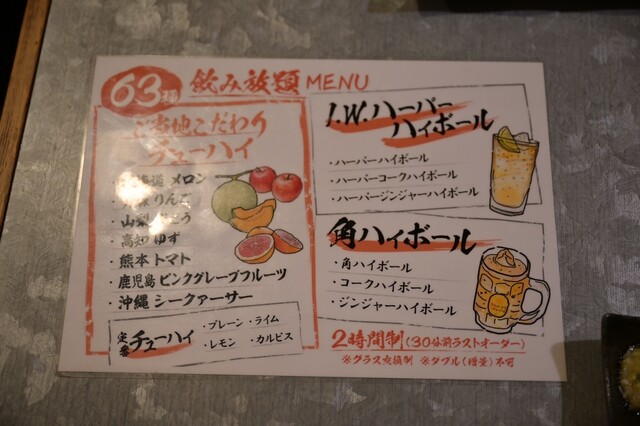 63種 飲み放題 MENU
ご当地こだわり
チューハイ
メロン
りんご
・山梨
・高知 ゆず
・熊本 トマト
・鹿児島 ピンクグレープフルーツ
・沖縄 シークァーサー
定番 チューハイ
・プレーン ・ライム
・レモン ・カルピス
I.W.ハーパー
ハイボール
・ハーパーハイボール
・ハーパーコークハイボール
・ハーパージンジャーハイボール
角ハイボール
・角ハイボール
・コークハイボール
・ジンジャーハイボール
2時間制(30分前ラストオーダー)
※グラス交換制 ※ダブル(増量)不可